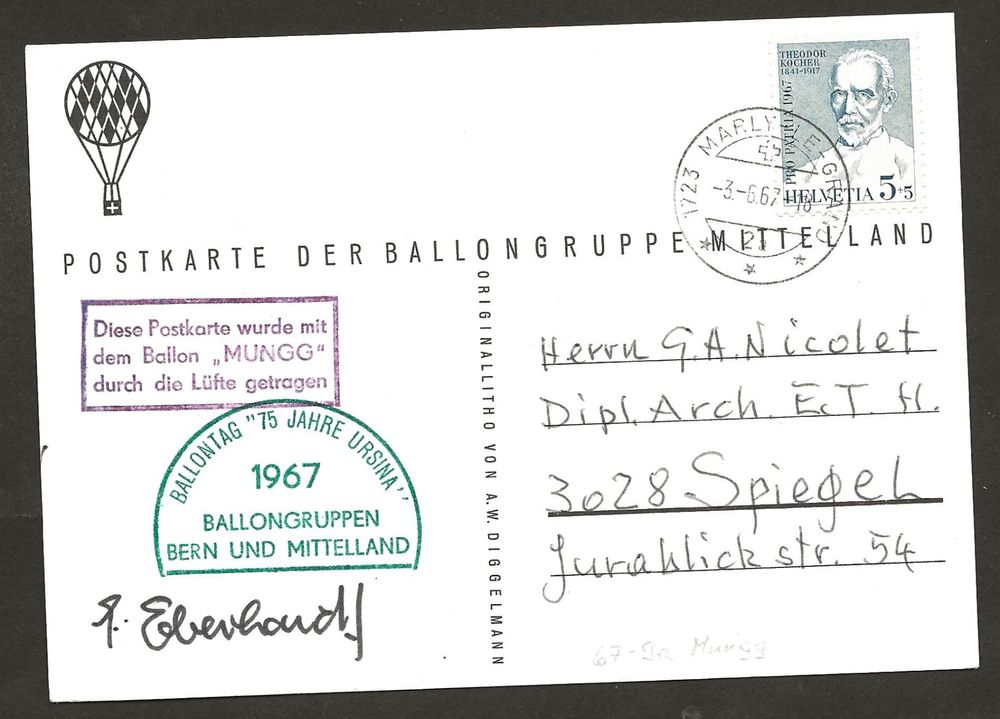 THEODOR
KOCHER
1841-1917
PRO PATRIA 1967
HELVETIA 5+5
1723 MARLY-LE-GRAND
-3.-6.67-18
POSTKARTE DER BALLONGRUPPE MITTELLAND
Diese Postkarte wurde mit
dem Ballon „MUNGG“
durch die Lüfte getragen
BALLONTAG "75 JAHRE URSINA"
1967
BALLONGRUPPEN
BERN UND MITTELLAND
Eberhardt
ORIGINALLITHO VON A.W. DIGGELMANN
Herrn G.A. Nicolet
Dipl. Arch. E.T.H.
3028 Spiegel
Jurablickstr. 54
67-9a Mungg